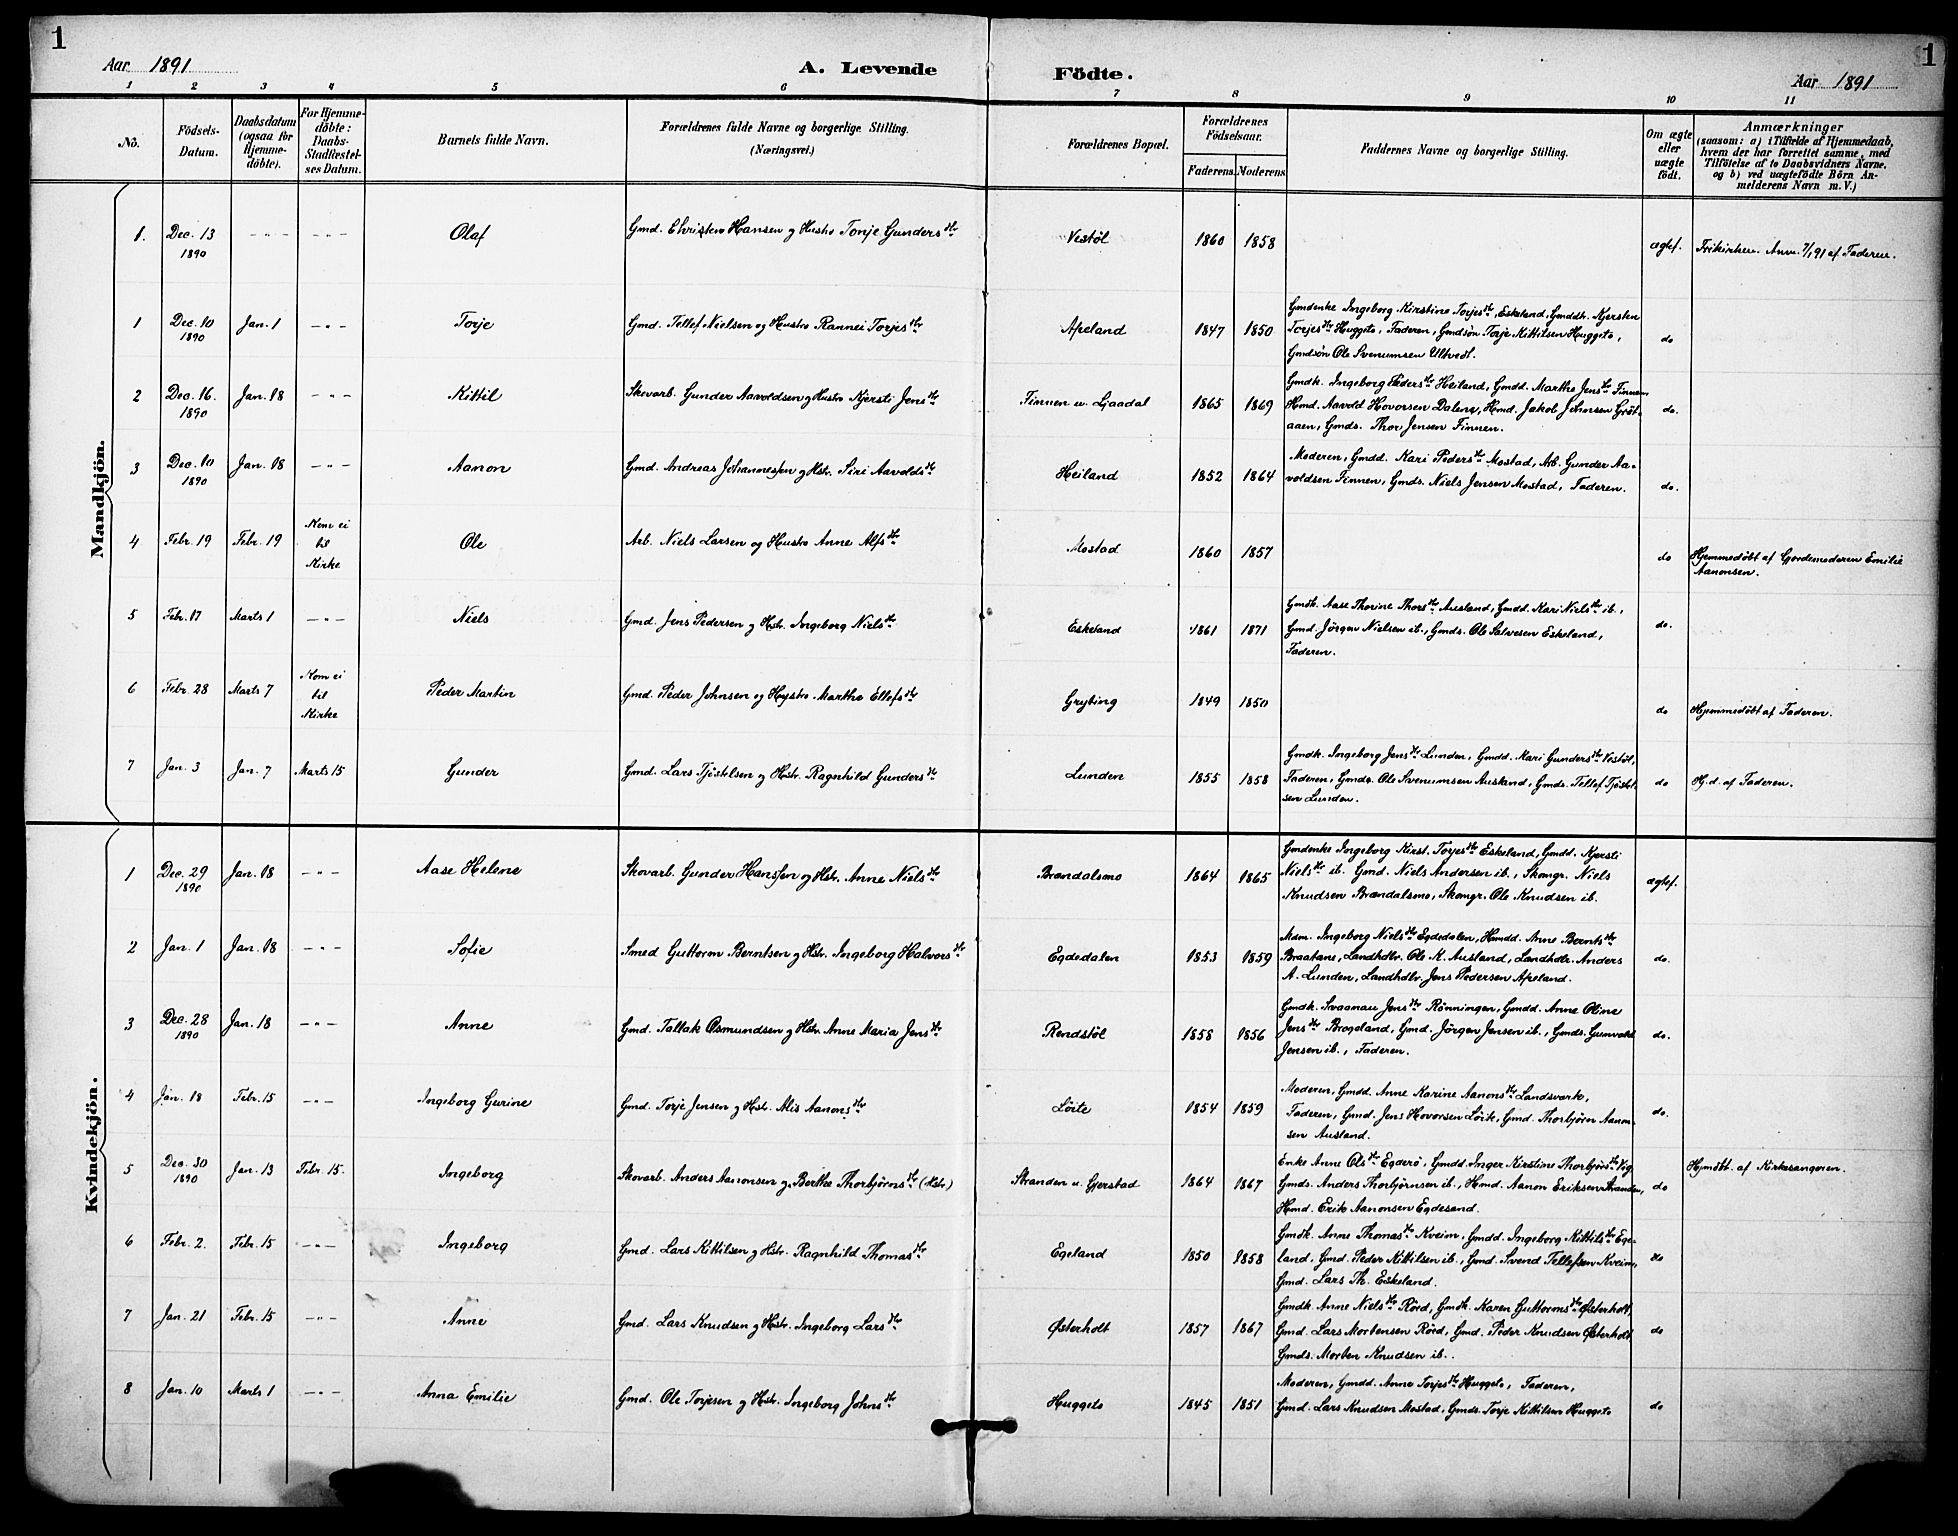 1
1
Aar 1891
A. Levende
Födte.
Aar 1891
1 2 3 4 5 6 7 8 9 10 11
No.
Födsels-Datum.
Daabsdatum (ogsaa for Hjemme-döbte).
For Hjemme-döbte: Daabs-Stadfæstel-ses Datum.
Barnets fulde Navn.
Forældrenes fulde Navne og borgerlige Stilling. (Næringsvei.)
Forældrenes Bopæl.
Forældrenes Födselsaar.
Faderens Moderens
Faddernes Navne og borgerlige Stilling.
Om ægte eller uægte födt.
Anmærkninger
(saasom: a) i Tilfælde af Hjemmedaab, hvem der har forrettet samme, med Tilföielse af to Daabsvidners Navne, og b) ved uægtefödte Börn An-melderens Navn m. V.)
Mandkjön.
1. Dec. 13 1890 - " - - " - Olaf Gmd. Christen Hansen og Hustro Torje Gundersdtr Vestøl 1860 1858 ægtef. Frikirken. Anm. 7/1 91 af Faderen.
1 Dec. 10 1890 Jan. 1 - " - Torje Gmd. Tellef Nielsen og Hustro Rannei Torjesdtr Apeland 1847 1850 do
Gmdenke Ingeborg Kirstine Torjesdtr Eskeland, Gmddtr. Kjersten
Torjesdtr Huggeto, Faderen, Gmdsøn Torje Kittilsen Huggeto,
Gmdsøn Ole Svenumsen Ultvedt.
2 Dec. 16. 1890 Jan. 18 - " - Kittil Skovarb. Gunder Aavoldsen og Hustro Kjersti Jensdtr Finnen u. Ljaadal 1865 1869 do.
Gmdk. Ingeborg Pedersdtr Heiland, Gmdd. Marthe Jensdtr Finnen
Hmd. Aavold Hovorsen Dalene, Hmd. Jakob Johnsen Gröt-
aaen, Gmds. Thor Jensen Finnen.
3 Dec. 10 1890 Jan. 18 - " - Aanon Gmd. Andreas Johannessen og Hstr. Siri Aavoldsdtr Heiland 1852 1864 do.
Moderen, Gmdd. Kari Pedersdtr Mostad, Arb. Gunder Aa-
voldsen Finnen, Gmds. Niels Jensen Mostad, Faderen.
4 Febr. 19 Febr. 19 Kom ei til Kirke Ole Arb. Niels Larsen og Hustro Anne Alfsdtr Mostad 1860 1857 do Hjemmedöbt af Gjordemoderen Emilie Aanonsen.
5 Febr. 17 Marts 1 - " - Niels Gmd. Jens Pedersen og Hstr. Ingeborg Nielsdtr Eskeland 1861 1871 do.
Gmdk. Aase Thorine Thorsdtr Ausland, Gmdd. Kari Nielsdtr ib.,
Gmd. Jörgen Nielsen ib., Gmds. Ole Salvesen Eskeland,
Faderen.
6 Febr. 28 Marts 7 Kom ei til Kirke Peder Martin Gmd. Peder Johnsen og Hustro Marthe Ellefsdtr Gryting 1849 1850 do Hjemmedöbt af Faderen.
7 Jan. 3 Jan. 7 Marts 15 Gunder Gmd. Lars Tjöstelsen og Hstr. Ragnhild Gundersdtr Lunden 1855 1858 do H.d. af Faderen.
Gmdk. Ingeborg Jensdtr Lunden, Gmdd. Mari Gundersdtr Vestøl,
Faderen, Gmds. Ole Svenumsen Ausland, Gmds. Tellef Tjöstel-
sen Lunden.
Kvindekjön.
1 Dec. 29 1890 Jan. 18 - " - Aase Helene Skovarb. Gunder Hanssen og Hstr. Anne Nielsdtr Brændalsmo 1864 1865 ægtef.
Gmdenke Ingeborg Kirst. Torjesdtr Eskeland, Gmdd. Kjersti
Nielsdtr ib. Gmd. Niels Andersen ib., Skomgr. Niels
Knudsen Brændalsmo, Skomgr. Ole Knudsen ib.
2 Jan. 1 Jan. 18 - " - Sofie Smed Guttorm Berntsen og Hstr. Ingeborg Halvorsdtr Egdedalen 1853 1859 do.
Mdm. Ingeborg Nielsdtr Egdedalen, Hmdd. Anne Berntsdtr
Braatane, Landhdlr. Ole K. Ausland, Landhdlr. Anders
A. Lunden, Landhdlr. Jens Pedersen Apeland.
3 Dec. 28 1890 Jan. 18 - " - Anne Gmd. Tallak Osmundsen og Hstr. Anne Maria Jensdtr Rendstöl 1858 1856 do.
Gmdk. Svaanau Jensdtr Rönningen, Gmdd. Anne Oline
Jensdtr Brogeland, Gmd. Jörgen Jensen ib., Gmds. Gunvald
Jensen ib., Faderen.
4 Jan. 18 Febr. 15 - " - Ingeborg Gurine Gmd. Torje Jensen og Hstr. Alis Aanonsdtr Löite 1854 1859 do.
Moderen, Gmdd. Anne Karine Aanonsdtr Landsverk,
Faderen, Gmd. Jens Hovorsen Löite, Gmd. Thorbjörn Aanon-
sen Ausland.
5 Dec. 30 1890 Jan. 13 Febr. 15. Ingeborg Skovarb. Anders Aanonsen og Berthe Thorbjörnsdtr (Hstr.) Stranden u. Gjerstad 1864 1867 do Hjmdöbt. af Kirkesangeren.
Enke Anne Olsdtr Egderö, Gmdd. Inger Kirstine Thorbjörnsdtr Vig
Gmds. Anders Thorbjörnsen ib., Hmd. Aanon Eriksen Stranden,
Hmd. Erik Aanonsen Egdesand.
6 Febr. 2. Febr. 15 - " - Ingeborg Gmd. Lars Kittilsen og Hstr. Ragnhild Thomasdtr Egeland 1850 1858 do
Gmdk. Anne Thomasdtr Kveim, Gmdd. Ingeborg Kittilsdtr Ege-
land, Gmd. Peder Kittilsen ib., Gmd. Svend Tellefsen Kveim,
Gmd. Lars Th. Eskeland.
7 Jan. 21 Febr. 15 - " - Anne Gmd. Lars Knudsen og Hstr. Ingeborg Larsdtr Østerholt 1857 1867 do
Gmdk. Anne Nielsdtr Röed, Gmdk. Karen Guttormsdtr Østerholt
Gmd. Lars Mortensen Röed, Gmd. Peder Knudsen Østerholt
Gmds. Morten Knudsen ib.
8 Jan. 10 Marts 1 - " - Anna Emilie Gmd. Ole Torjesen og Hstr. Ingeborg Johnsdtr Huggeto 1845 1851 do
Moderen, Gmdd. Anne Torjesdtr Huggeto, Faderen,
Gmd. Lars Knudsen Mostad, Gmds. Torje Kittilsen Huggeto